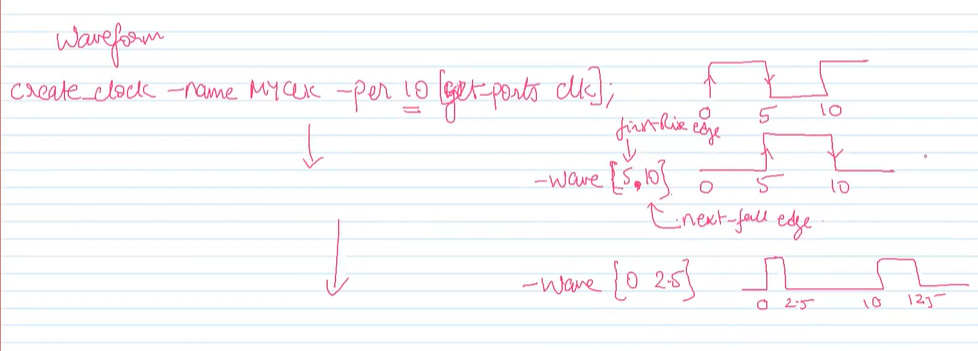 Waveform
create_clock -name MYCLK -per 10 [get-ports clk];
0 5 10
first-Rise edge
-wave [5,10]
0 5 10
next-fall edge
-wave {0 2.5}
0 2.5 10 12.5